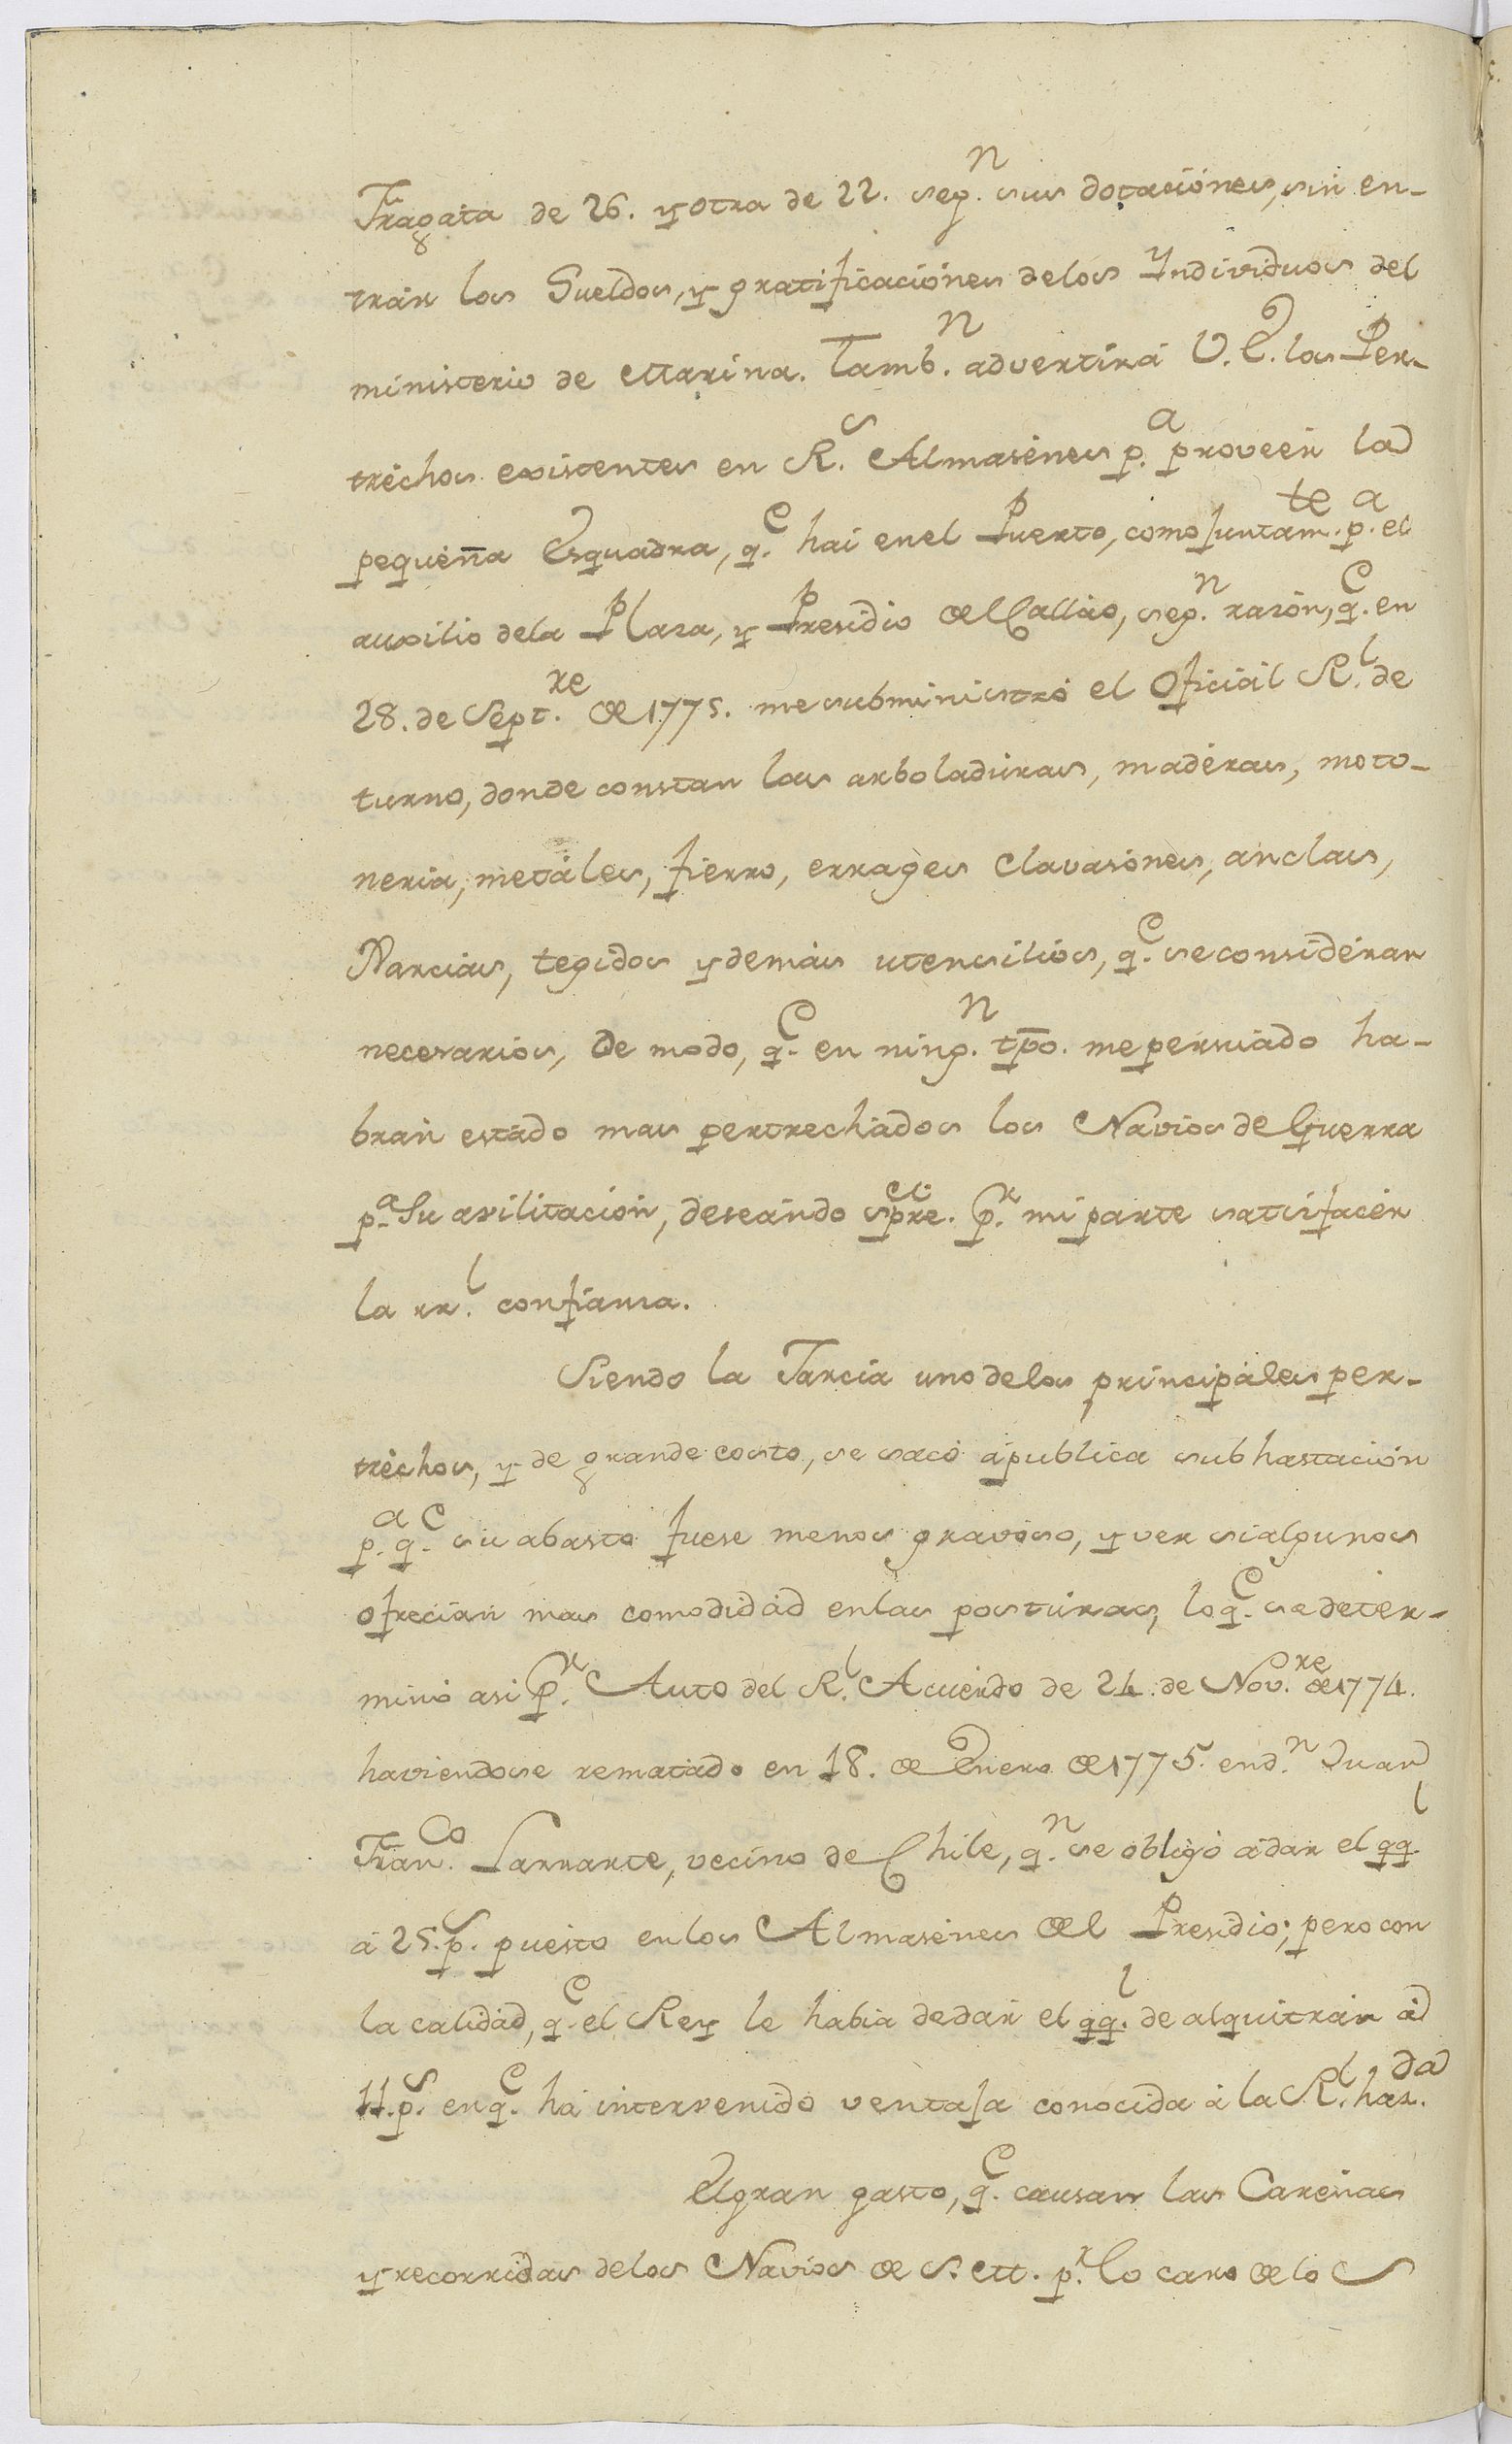 Fragata de 26. y otra de 22. seg.n sus dotaciónes, sin en-
trár los Sueldos, y gratificaciónes delos Yndividuos del
ministerio de Marina. Tamb.n advertirá V.E. los Per-
tréchos existentes en R.s Almasénes p.a proveér la
pequeña Esquadra, q.e hai enel Puerto, como juntam.te p.a el
auxilio dela Plaza, y Presidio del Callao, seg.n razón, q.e en
28. de Sept.re de 1775. me subministró el Oficiál R.l de
turno, donde constan las arboladúras, madéras, moto-
neria, metáles, fierro, errages clavasónes, anclas,
Xarcias, tegidos y demás utensilios, q.e se considéran
necesarios, de modo, q.e en ning.n tpo. me persuádo ha-
brán estádo mas pertrechádos los Navios de Guerra
p.a su avilitación, deseándo spre. p.r mi parte satisfacér
la rr.l confianza.
Siendo la Jarcia uno delos principáles per-
tréchos, y de grande costo, se sacó á publica subhastación
p.a q.e su abasto fuese menos gravóso, y ver si algunos
ofrecían mas comodidád enlas postúras, lo q.e se deter-
minó asi p.r Auto del R.l Acuérdo de 24. de Nov.re de 1774.
haviendose rematádo en 18. de Enero de 1775. en d.n Juan
Fran.co Larrarte, vecino de Chile, q.n se obligó á dar el qq.l
á 25. p.s puesto enlos Almasénes del Presidio; pero con
la calidád, q.e el Rey le habia de dár el qq.l de alquitrán á
11. p.s en q.e há intervenido ventaja conocida á la R.l haz.da
El gran gasto, q.e causan las Carénas
y recorridas delos Navios de S.M. p.r lo caro de los